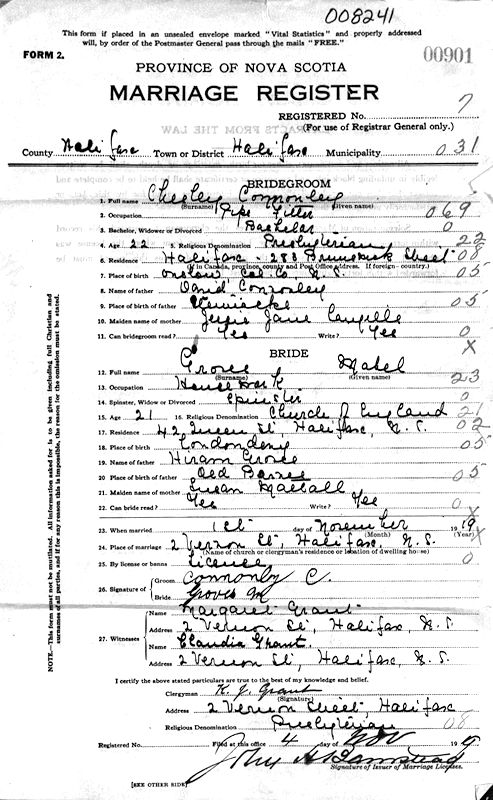 008241
This form if placed in an unsealed envelope marked "Vital Statistics" and properly addressed
will, by order of the Postmaster General pass through the mails "FREE."
FORM 2.
00901
PROVINCE OF NOVA SCOTIA
MARRIAGE REGISTER
REGISTERED No. 7
(For use of Registrar General only.)
County Halifax Town or District Halifax Municipality 031
BRIDEGROOM
1. Full name Chesley Connonley
(Surname) (Given name)
2. Occupation Pipe Fitter 069
3. Bachelor, Widower or Divorced Bachelor 0
4. Age 22 5. Religious Denomination Presbyterian 22
6. Residence Halifax - 288 Brunswick Street 08
(If in Canada, province, county and Post Office address. If foreign - country.)
7. Place of birth Onslow Col. Co. N.S. 05
8. Name of father David Connonley
9. Place of birth of father 05
10. Maiden name of mother Jessie Jane
11. Can bridegroom read? Yes Write? Yes 0
X
BRIDE
12. Full name Groves Mabel
(Surname) (Given name)
13. Occupation House Work 23
14. Spinster, Widow or Divorced Spinster 0
15. Age 21 16. Religious Denomination Church of England 21
17. Residence 42 Queen St, Halifax, N.S. 02
18. Place of birth Londonderry 05
19. Name of father Hiram Groves
20. Place of birth of father Old Barnes 05
21. Maiden name of mother Susan
22. Can bride read? Yes Write? Yes 0
X
23. When married 1st day of November 1919
(Month) (Year) X
24. Place of marriage 2 Vernon St, Halifax, N.S.
(Name of church or clergyman's residence or location of dwelling house)
25. By license or banns License 0
26. Signature of Groom Connonly C.
Bride Groves M
27. Witnesses Name Margaret Grant
Address 2 Vernon St, Halifax, N.S.
Name Claudia Grant
Address 2 Vernon St, Halifax, N.S.
I certify the above stated particulars are true to the best of my knowledge and belief.
Clergyman K. J. Grant
(Signature)
Address 2 Vernon Street, Halifax
Religious Denomination Presbyterian 08
Registered No. Filed at this office 4 day of Nov 19
John
Signature of Issuer of Marriage Licenses.
[SEE OTHER SIDE]
NOTE.—This form must not be mutilated. All information asked for is to be given including full Christian and
surnames of all parties, and if for any reason this is impossible, the reason for the omission must be stated.